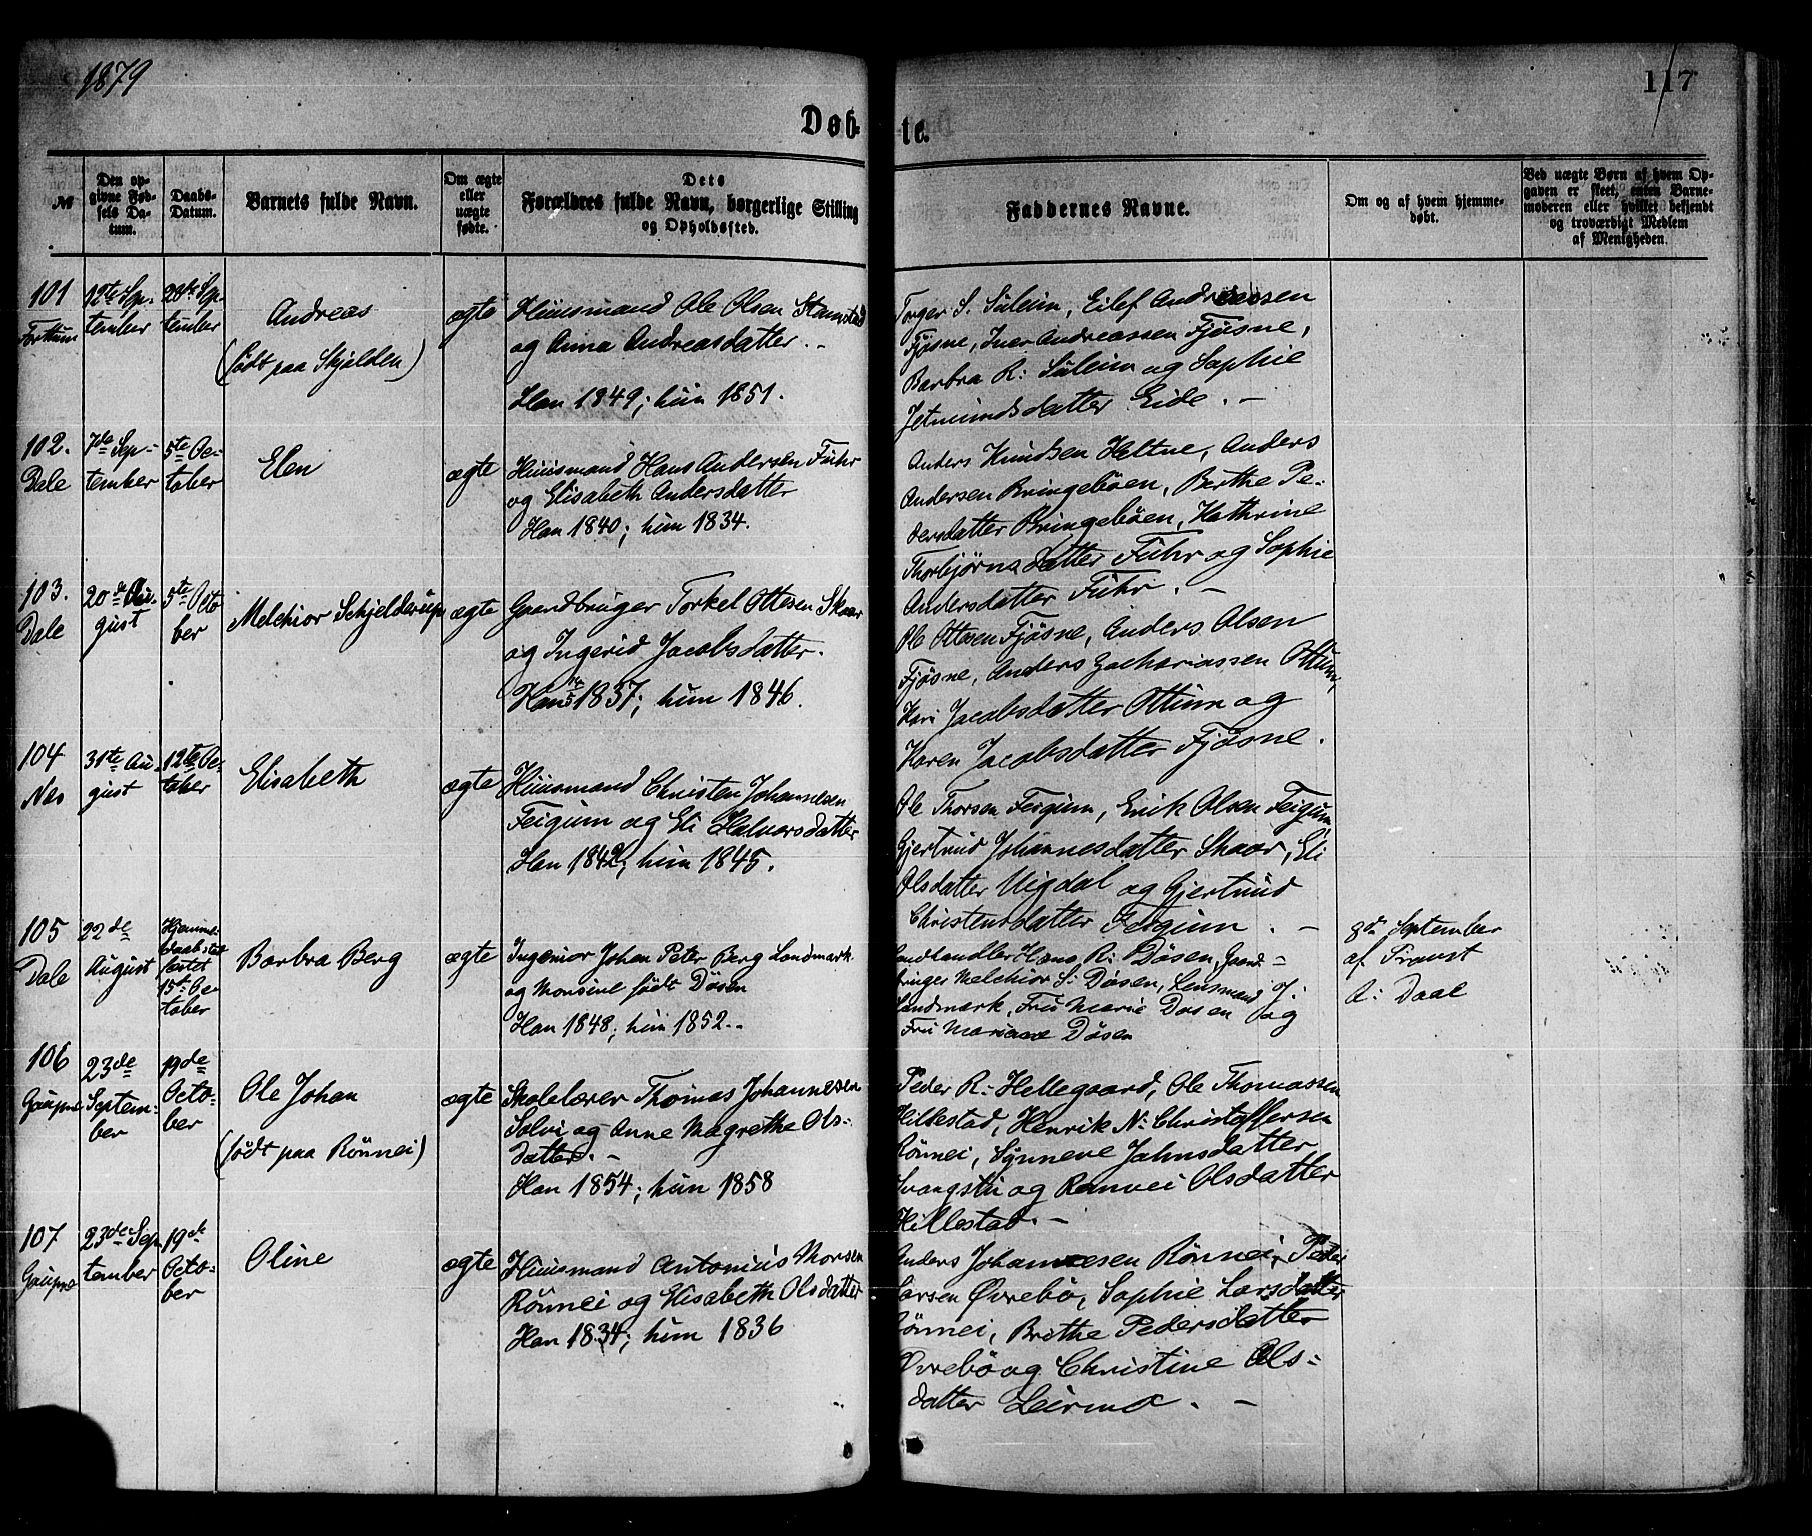 1879
117
Døb-
te.
№
Den op-
givne Fød-
sels Da-
tum.
Daabs-
Datum.
Barnets fulde Navn.
Om ægte
eller
uægte
fødte.
Dets
Forældres fulde Navn, borgerlige Stilling
og Opholdssted.
Faddernes Navne.
Om og af hvem hjemme-
døbt.
Ved uægte Børn af hvem Op-
gaven er skeet, enten Barne-
moderen eller hvilket bekjendt
og troværdigt Medlem
af Menigheden.
101
Forttun
12te Sep-
tember
28de Sep-
tember
Andreas
(født paa Skjolden)
ægte
Huusmand Ole Olsen Stamstad
og Anna Andreasdatter. -
Han 1849; hun 1851.
Torger S. Süleim, Eilef Andreassen
Fjøsne, Iver Andreassen Fjøsne,
Barbra R: Süleim og Sophie
Jetmundsdatter Eide. -
102.
Dale
7de Sep-
tember
5te Oc-
tober
Elen
ægte
Huusmand Hans Andersen Fuhr
og Elisabeth Andersdatter
Han 1840; hun 1834.
Anders Knudsen Heltne, Anders
Andersen Bringebøen, Berthe Pe-
dersdatter Bringebøen, Kathrine
Thorbjørnsdatter Fuhr og Sophie
Andersdatter Fuhr. -
103.
Dale
20de Au-
gust
5te Octo
ber
Melchior Schjelderup
ægte
Gaardbruger Torkel Ottesen Skaar
og Ingerid Jacobsdatter.
Han 1837; hun 1846.
Ole Ottesen Fjøsne, Anders Olsen
Fjøsne, Anders Zachariassen Ottum,
Kari Jacobsdatter Ottum og
Karen Jacobsdatter Fjøsne.
104
Nes
31te Au-
gust
12te Oc-
tober
Elisabeth
ægte
Huusmand Christen Johannesen
Feigum og Eli Halvorsdatter
Han 1842; hun 1845.
Ole Thorsen Feigum, Erik Olsen Feigum
Gjertrud Johannesdatter Skaar, Eli
Olsdatter Vigdal og Gjertrud
Christensdatter Feigum. -
105
Dale
22de
August
Hjemme-
daab stad
fæstet
15de Oc-
tober
Barbra Berg
ægte
Ingeniør Johan Peter Berg Landmark
og Monsine født Døsen
Han 1848; hun 1852. -
Landhandler Hans R: Døsen, Gaard-
bruger Melchior S: Døsen, Lensmand J:
Landmark, Fru Marie Døsen og
Fru Mariane Døsen
8de September
af Provst
A: Daae
106
Gaupne
23de
Septem-
ber
19de
Octo-
ber
Ole Johan
(født paa Rønnei)
ægte
Skolelærer Thomas Johannesen
Solvi og Anne Magrethe Ols-
datter. -
Han 1854; hun 1858
Peder R: Hellegaard, Ole Thomassen
Hillestad, Henrik N: Christoffersen
Rønnei, Synneve Jahnsdatter
Svangstu og Ranvei Olsdatter
Hillestad. -
107
Gaupne
23de Sep-
tember
19de
Octo-
ber
Oline
ægte
Huusmand Antonius Monsen
Rønnei og Elisabeth Olsdatter
Han 1834; hun 1836
Anders Johannesen Rønnei, Peder
Larsen Øvrebø, Sophie Larsdatter
Rønnei, Brethe Pedersdatter
Øvrebø og Christine Ols-
datter Leirmo. -